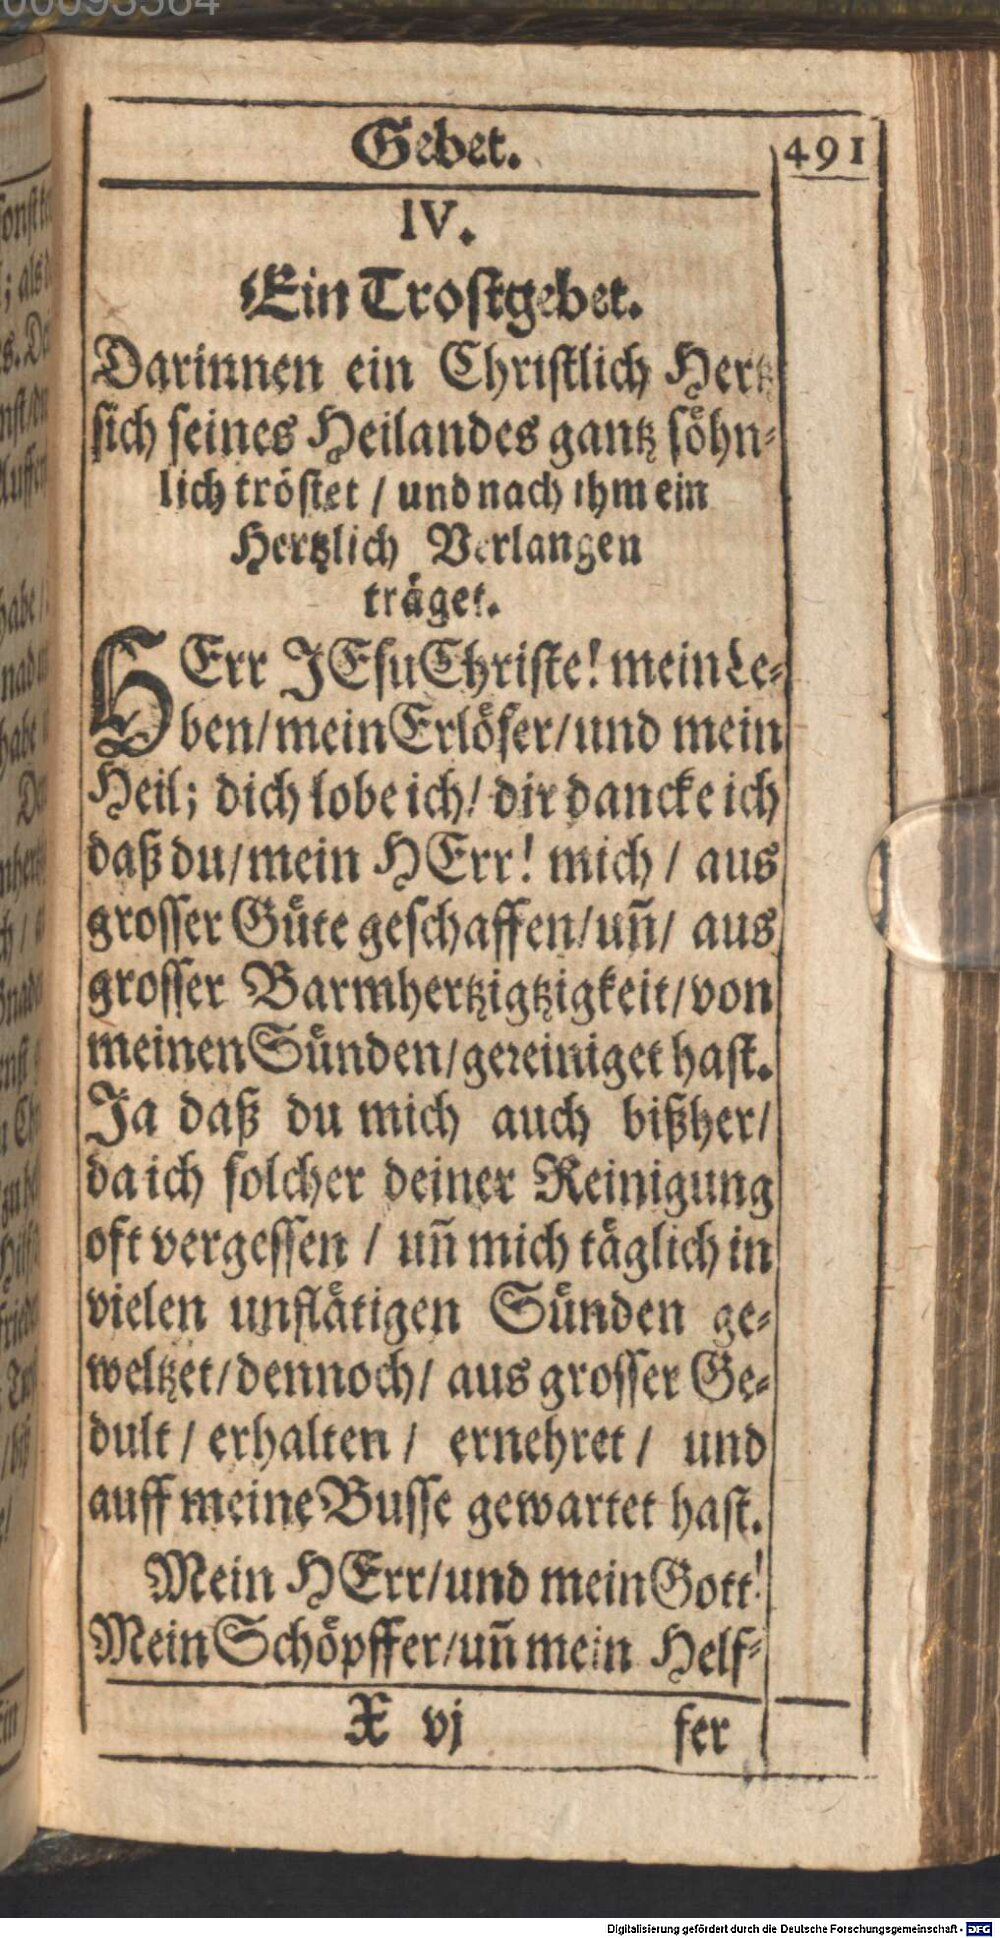 Gebet. 491
IV.
Ein Trostgebet.
Darinnen ein Christlich Hertz
sich seines Heilandes gantz söhn-
lich tröstet / und nach ihm ein
Hertzlich Verlangen
träget.
HErr JEsu Christe! mein Le-
ben/mein Erlöser/und mein
Heil; dich lobe ich/ dir dancke ich
daß du/mein HErr! mich / aus
grosser Güte geschaffen/uñ/ aus
grosser Barmhertzigtzigkeit/von
meinen Sünden/gereiniget hast.
Ja daß du mich auch bißher/
da ich solcher deiner Reinigung
oft vergessen / uñ mich täglich in
vielen unflätigen Sünden ge-
weltzet/dennoch/ aus grosser Ge-
dult / erhalten / ernehret / und
auff meine Busse gewartet hast.
Mein HErr/und mein Gott!
Mein Schöpffer/uñ mein Helf-
X vj fer
Digitalisierung gefördert durch die Deutsche Forschungsgemeinschaft - DFG